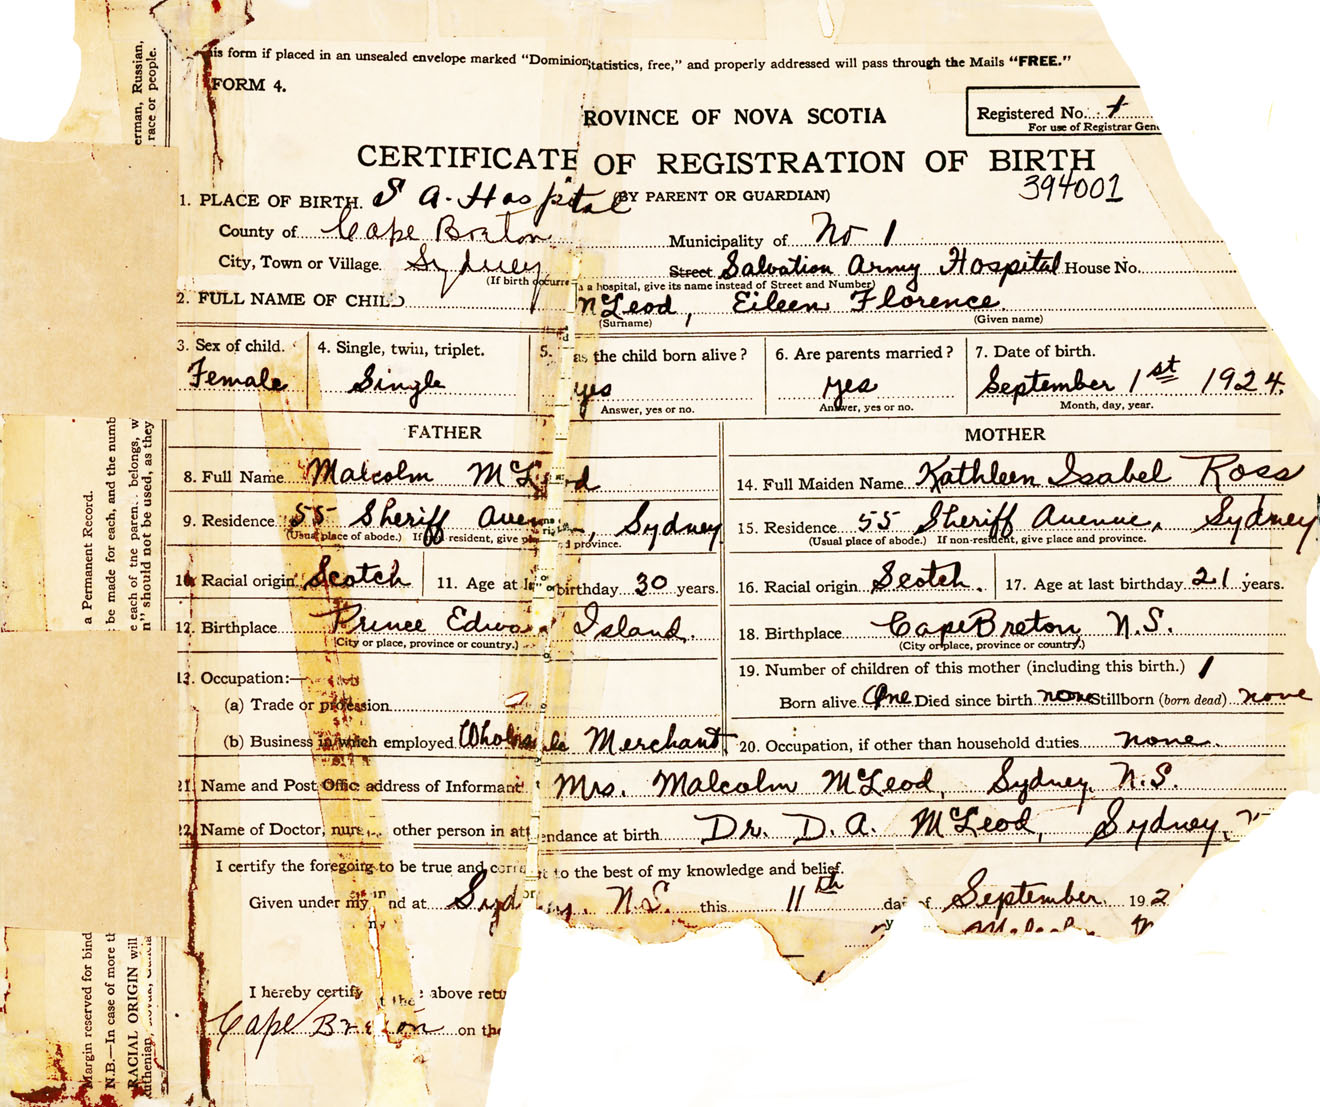 is form if placed in an unsealed envelope marked "Dominion Statistics, free," and properly addressed will pass through the Mails "FREE."
FORM 4.
ROVINCE OF NOVA SCOTIA
Registered No.
For use of Registrar Gen
CERTIFICATE OF REGISTRATION OF BIRTH
(BY PARENT OR GUARDIAN)
394001
1. PLACE OF BIRTH. S A. Hospital
County of Cape Breton Municipality of No 1
City, Town or Village. Sydney Street Salvation Army Hospital House No.
(If birth occurre a hospital, give its name instead of Street and Number)
2. FULL NAME OF CHILD McLeod, Eileen Florence
(Surname) (Given name)
3. Sex of child. 4. Single, twin, triplet. 5. as the child born alive? 6. Are parents married? 7. Date of birth.
Female Single yes yes September 1st 1924.
Answer, yes or no. Answer, yes or no. Month, day, year.
FATHER MOTHER
8. Full Name Malcolm McLeod
14. Full Maiden Name Kathleen Isabel Ross
9. Residence 55 Sheriff Avenue, Sydney
(Usual place of abode.) If resident, give province.
15. Residence 55 Sheriff Avenue, Sydney
(Usual place of abode.) If non-resident, give place and province.
10. Racial origin Scotch 11. Age at la birthday 30 years.
16. Racial origin Scotch. 17. Age at last birthday 21 years.
12. Birthplace Prince Edward Island.
(City or place, province or country.)
18. Birthplace Cape Breton, N.S.
(City or place, province or country.)
13. Occupation:—
(a) Trade or profession
(b) Business in which employed Wholesale Merchant
19. Number of children of this mother (including this birth.) 1
Born alive One Died since birth none Stillborn (born dead) none
20. Occupation, if other than household duties none.
21 Name and Post Office address of Informant Mrs. Malcolm McLeod, Sydney, N.S.
22. Name of Doctor, nurse other person in attendance at birth Dr. D. A. McLeod, Sydney,
I certify the foregoing to be true and correct to the best of my knowledge and belief.
Given under my nd at Sydney, N.S. this 11th day of September 192
Malcolm
I hereby certify t the above retu
Cape Breton on the
erman, Russian,
race or people.
a Permanent Record.
be made for each, and the numb
e each of the paren belongs, w
n" should not be used, as they
Margin reserved for bind
N.B.—In case of more th
RACIAL ORIGIN will